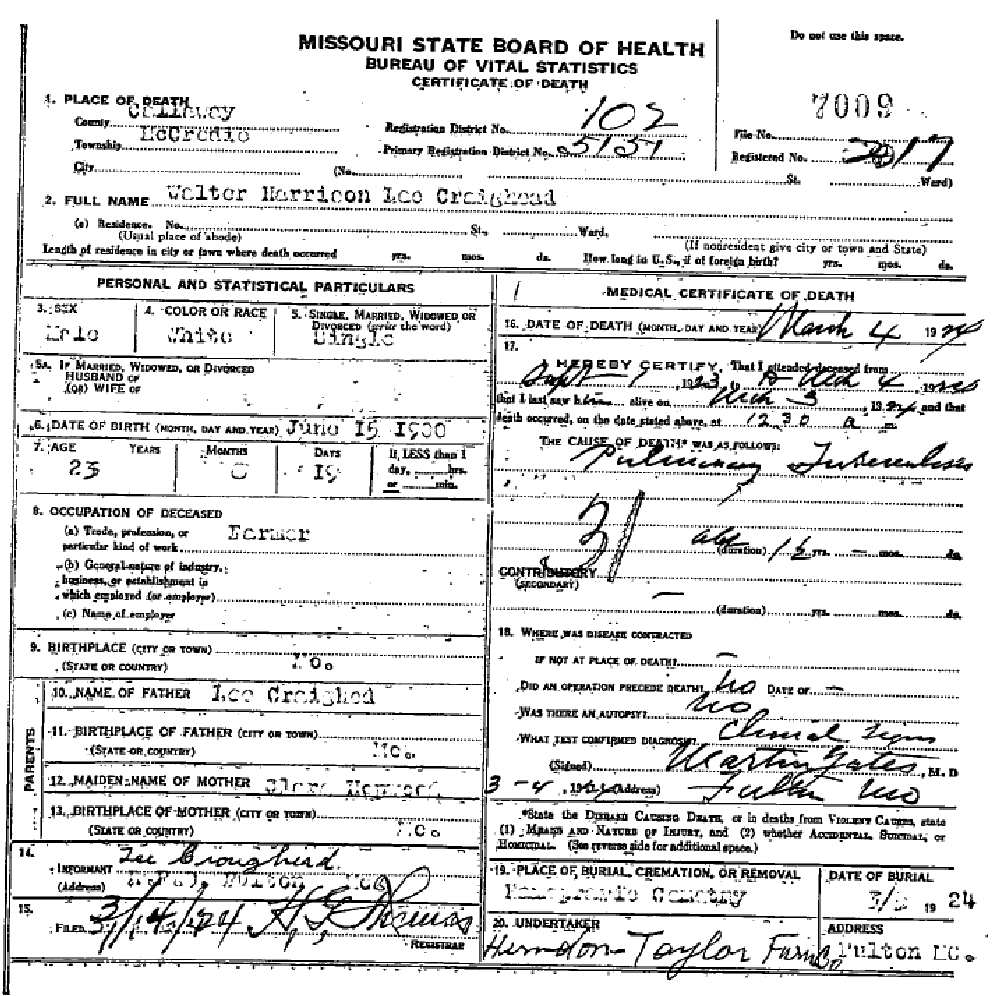 Do not use this space.
MISSOURI STATE BOARD OF HEALTH
BUREAU OF VITAL STATISTICS
CERTIFICATE OF DEATH
7009
1. PLACE OF DEATH
County Callaway Registration District No. 102 File No.
Township McCredie Primary Registration District No. 5151 Registered No.
City (No. St. Ward)
2. FULL NAME Walter Harrison Lee Craighead
(a) Residence. No. St. Ward.
(Usual place of abode) (If nonresident give city or town and State)
Length of residence in city or town where death occurred yrs. mos. ds. How long in U.S., if of foreign birth? yrs. mos. ds.
PERSONAL AND STATISTICAL PARTICULARS
3. SEX 4. COLOR OR RACE 5. SINGLE, MARRIED, WIDOWED OR DIVORCED (write the word)
Male White Single
5A. IF MARRIED, WIDOWED, OR DIVORCED
HUSBAND OF
(OR) WIFE OF
6. DATE OF BIRTH (MONTH, DAY AND YEAR) June 15 1900
7. AGE YEARS MONTHS DAYS If LESS than 1 day, hrs. or min.
23 8 19
8. OCCUPATION OF DECEASED
(a) Trade, profession, or
particular kind of work Farmer
(b) General nature of industry,
business, or establishment in
which employed (or employer)
(c) Name of employer
9. BIRTHPLACE (CITY OR TOWN)
(STATE OR COUNTRY) Mo.
PARENTS
10. NAME OF FATHER Lee Craighed
11. BIRTHPLACE OF FATHER (CITY OR TOWN)
(STATE OR COUNTRY) Mo.
12. MAIDEN NAME OF MOTHER
13. BIRTHPLACE OF MOTHER (CITY OR TOWN)
(STATE OR COUNTRY) Mo.
14.
INFORMANT Lee Croughead
(Address) Fulton Mo
15.
FILED 3/14/24 H G Thomas
REGISTRAR
MEDICAL CERTIFICATE OF DEATH
16. DATE OF DEATH (MONTH, DAY AND YEAR) March 4 1924
17.
I HEREBY CERTIFY, That I attended deceased from
Sept 1 1923, to Mch 4, 1924
that I last saw him alive on Mch 3, 1924, and that
death occurred, on the date stated above, at 12.30 a m.
THE CAUSE OF DEATH* WAS AS FOLLOWS:
Pulmonary Tuberculosis
31
abt (duration) yrs. — mos. ds.
CONTRIBUTORY
(SECONDARY) —
(duration) yrs. mos. ds.
18. WHERE WAS DISEASE CONTRACTED
IF NOT AT PLACE OF DEATH? —
DID AN OPERATION PRECEDE DEATH? No DATE OF —
WAS THERE AN AUTOPSY? No
WHAT TEST CONFIRMED DIAGNOSIS? Clinical Signs
(Signed) Martin Yates, M. D
3 - 4, 192 (Address) Fulton Mo
*State the DISEASE CAUSING DEATH, or in deaths from VIOLENT CAUSES, state
(1) MEANS AND NATURE OF INJURY, and (2) whether ACCIDENTAL, SUICIDAL, or
HOMICIDAL. (See reverse side for additional space.)
19. PLACE OF BURIAL, CREMATION, OR REMOVAL DATE OF BURIAL
1924
20. UNDERTAKER ADDRESS
Herndon-Taylor Furn Co Fulton Mo.